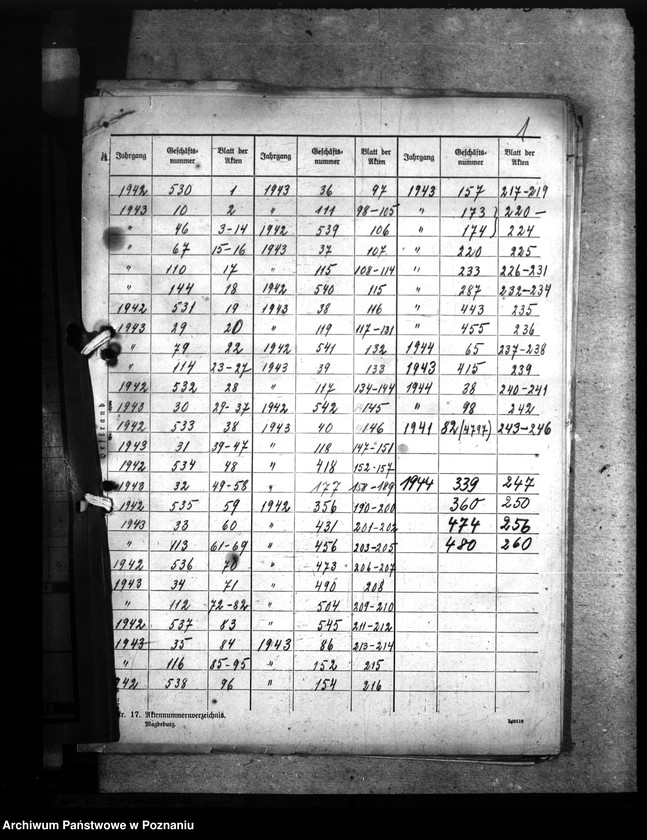 1
Jahrgang Geschäfts-nummer Blatt der Akten Jahrgang Geschäfts-nummer Blatt der Akten Jahrgang Geschäfts-nummer Blatt der Akten
1942 530 1 1943 36 97 1943 157 217-219
1943 10 2 " 111 98-105 " 173 } 220-
" 46 3-14 1942 539 106 " 174 } 224
" 67 15-16 1943 37 107 " 220 225
" 110 17 " 115 108-114 " 233 226-231
" 144 18 1942 540 115 " 287 232-234
1942 531 19 1943 38 116 " 443 235
1943 29 20 " 119 117-131 " 455 236
" 79 22 1942 541 132 1944 65 237-238
" 114 23-27 1943 39 133 1943 415 239
1942 532 28 " 117 134-144 1944 38 240-241
1943 30 29-37 1942 542 145 " 98 242
1942 533 38 1943 40 146 1941 82/4797) 243-246
1943 31 39-47 " 118 147-151
1942 534 48 " 418 152-157
1943 32 49-58 " 177 158-189 1944 339 247
1942 535 59 1942 356 190-200 360 250
1943 33 60 " 431 201-202 474 256
" 113 61-69 " 456 203-205 480 260
1942 536 70 " 473 206-207
1943 34 71 " 490 208
" 112 72-82 " 504 209-210
1942 537 83 " 545 211-212
1943 35 84 1943 86 213-214
" 116 85-95 " 152 215
942 538 96 " 154 216
Nr. 17. Aktennummernverzeichnis.
Magdeburg.
Archiwum Państwowe w Poznaniu